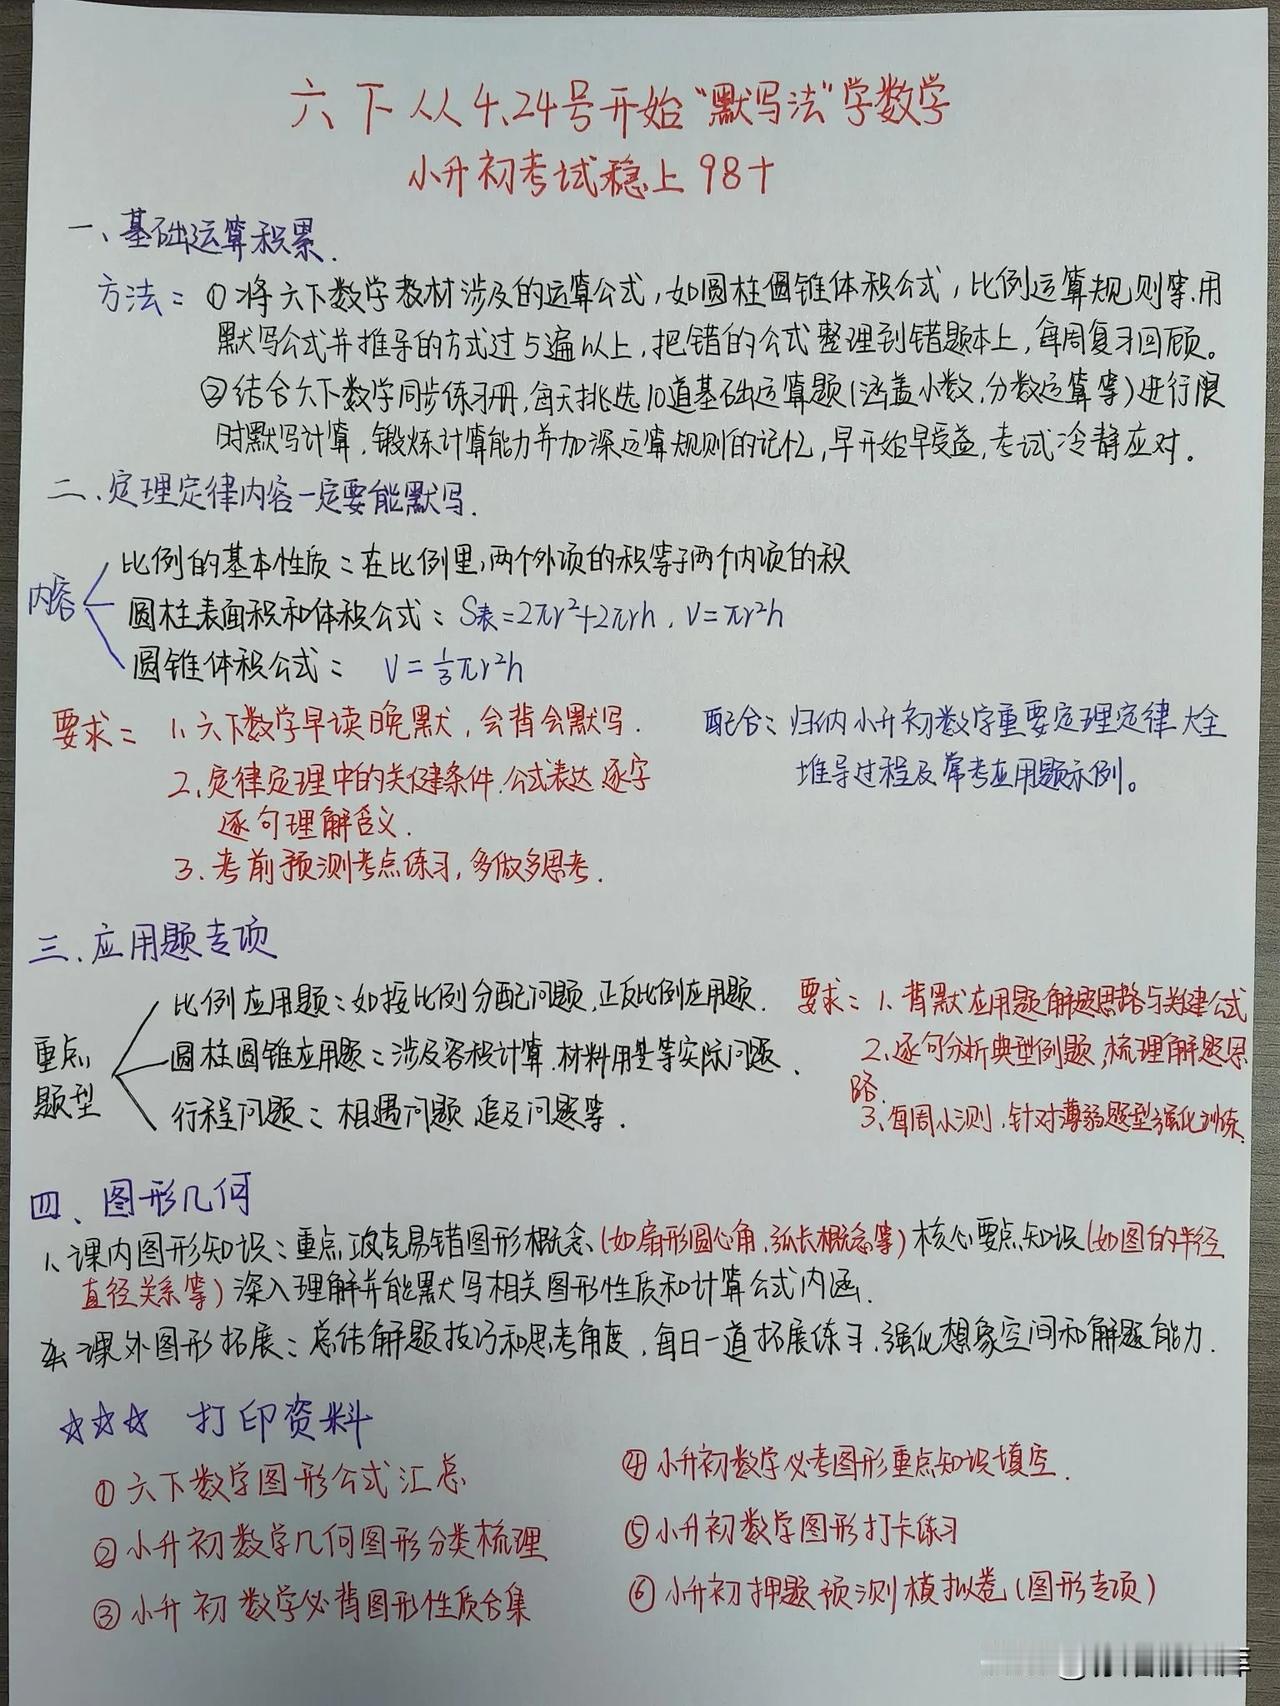 六下从4.24号开始“默写法”学数学
小升初考试稳上98十
一、基础运算积累.
方法：①将六下数学教材涉及的运算公式，如圆柱圆锥体积公式，比例运算规则等.用
默写公式并推导的方式过5遍以上，把错的公式整理到错题本上，每周复习回顾。
②结合六下数学同步练习册，每天挑选10道基础运算题(涵盖小数，分数运算等)进行限
时默写计算，锻炼计算能力并加深运算规则的记忆，早开始早受益，考试冷静应对。
二、定理定律内容一定要能默写.
内容
比例的基本性质：在比例里，两个外项的积等于两个内项的积
圆柱表面积和体积公式：S表=2πr²+2πrh，V=πr²h
圆锥体积公式： V=⅓πr²h
要求： 1.六下数学早读晚默，会背会默写.
2.定律定理中的关键条件.公式表达.逐字
逐句理解含义.
3.考前预测考点练习，多做多思考.
配合：归纳小升初数学重要定理定律大全
堆导过程及常考应用题示例。
三、应用题专项
重点
题型
比例应用题：如按比例分配问题，正反比例应用题.
圆柱圆锥应用题：涉及容积计算.材料用量等实际问题、
行程问题：相遇问题.追及问题等.
要求：1.背默应用题解题思路与关键公式
2.逐句分析典型例题，梳理解题思
路.
3.每周小测，针对薄弱题型强化训练.
四、图形几何
1、课内图形知识：重点攻克易错图形概念(如扇形圆心角、弧长概念等)核心要点知识(如图的半径
直径关系等)深入理解并能默写相关图形性质和计算公式内涵.
课外图形拓展：总结解题技巧和思考角度，每日一道拓展练习.强化想象空间和解题能力.
☆☆☆ 打印资料
①六下数学图形公式汇总
②小升初数学几何图形分类梳理
③小升初数学必背图形性质合集
④小升初数学必考图形重点知识填空.
⑤小升初数学图形打卡练习
⑥小升初押题预测模拟卷(图形专项)